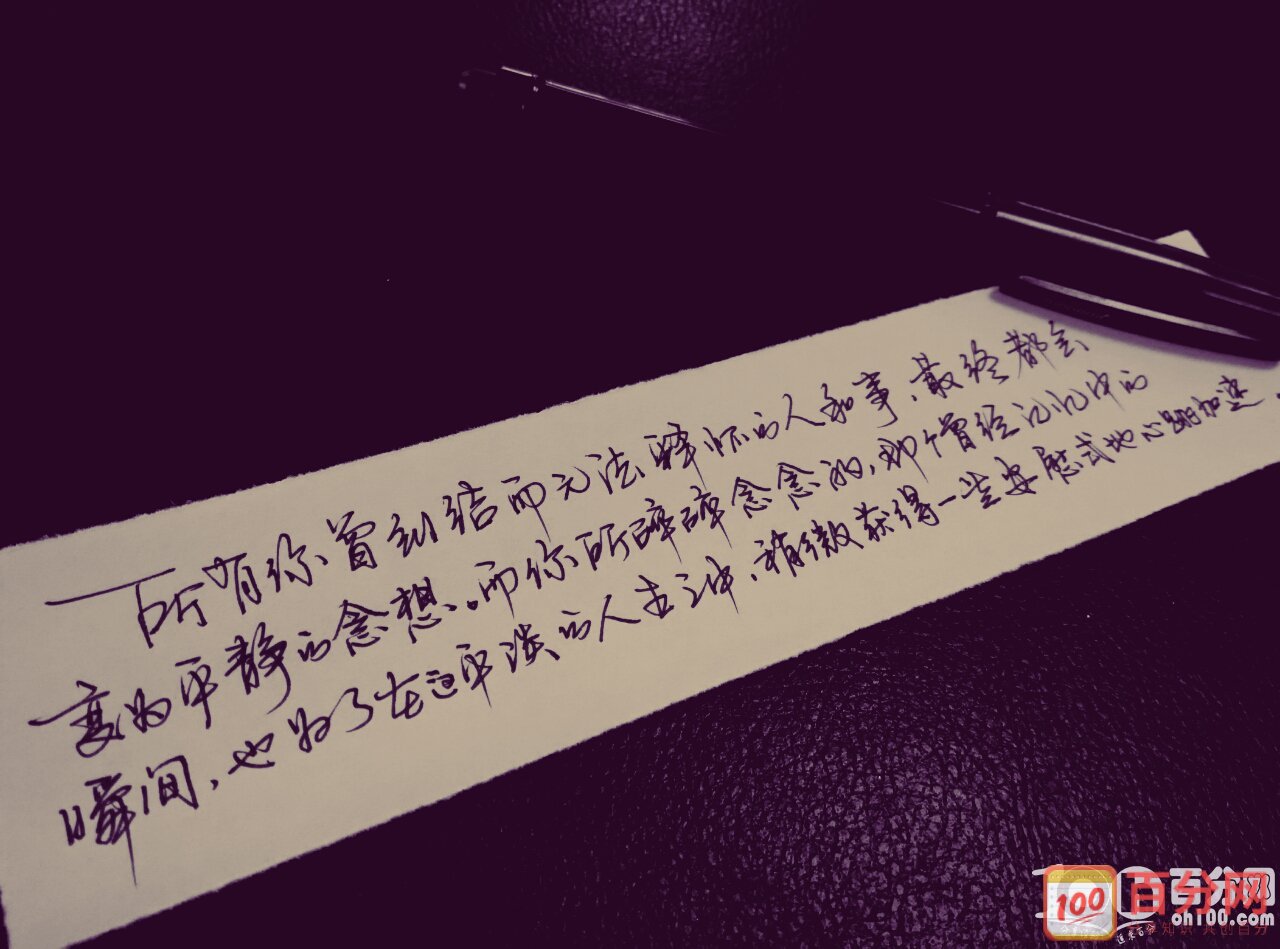 所有你曾纠结而无法释怀的人和事、最终都会
变为平静的念想。而你所碎碎念念的,那个曾经记忆中的
瞬间,也为了在这平淡的人生之中、稍微获得一些安慰式地心跳加速。
100
百分网
百分网
oh100.com
知识 共创百分